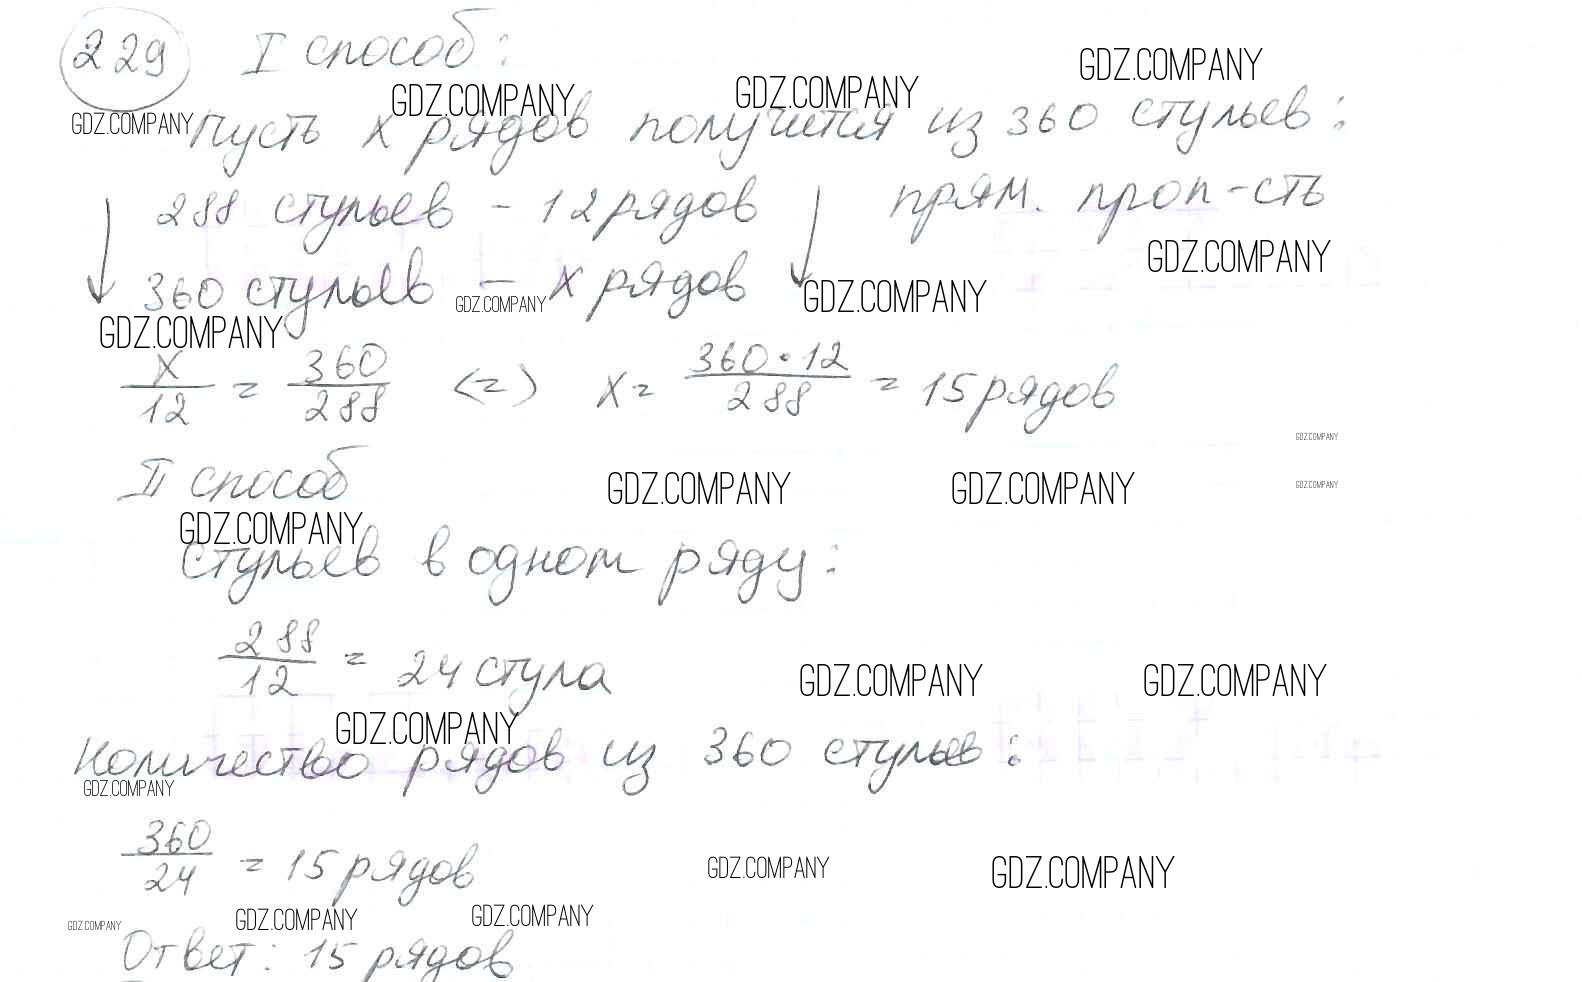 229 I способ:
GDZ.COMPANY
GDZ.COMPANY GDZ.COMPANY
GDZ.COMPANY
Пусть x рядов получится из 360 стульев:
288 стульев - 12 рядов прям. проп-сть
GDZ.COMPANY
360 стульев - x рядов
GDZ.COMPANY GDZ.COMPANY
GDZ.COMPANY
x/12 = 360/288 <=> x = 360·12/288 = 15 рядов
GDZ.COMPANY
II способ
GDZ.COMPANY GDZ.COMPANY GDZ.COMPANY
GDZ.COMPANY
Стульев в одном ряду:
288/12 = 24 стула
GDZ.COMPANY GDZ.COMPANY
GDZ.COMPANY
Количество рядов из 360 стульев:
GDZ.COMPANY
360/24 = 15 рядов
GDZ.COMPANY GDZ.COMPANY
GDZ.COMPANY GDZ.COMPANY GDZ.COMPANY
Ответ: 15 рядов